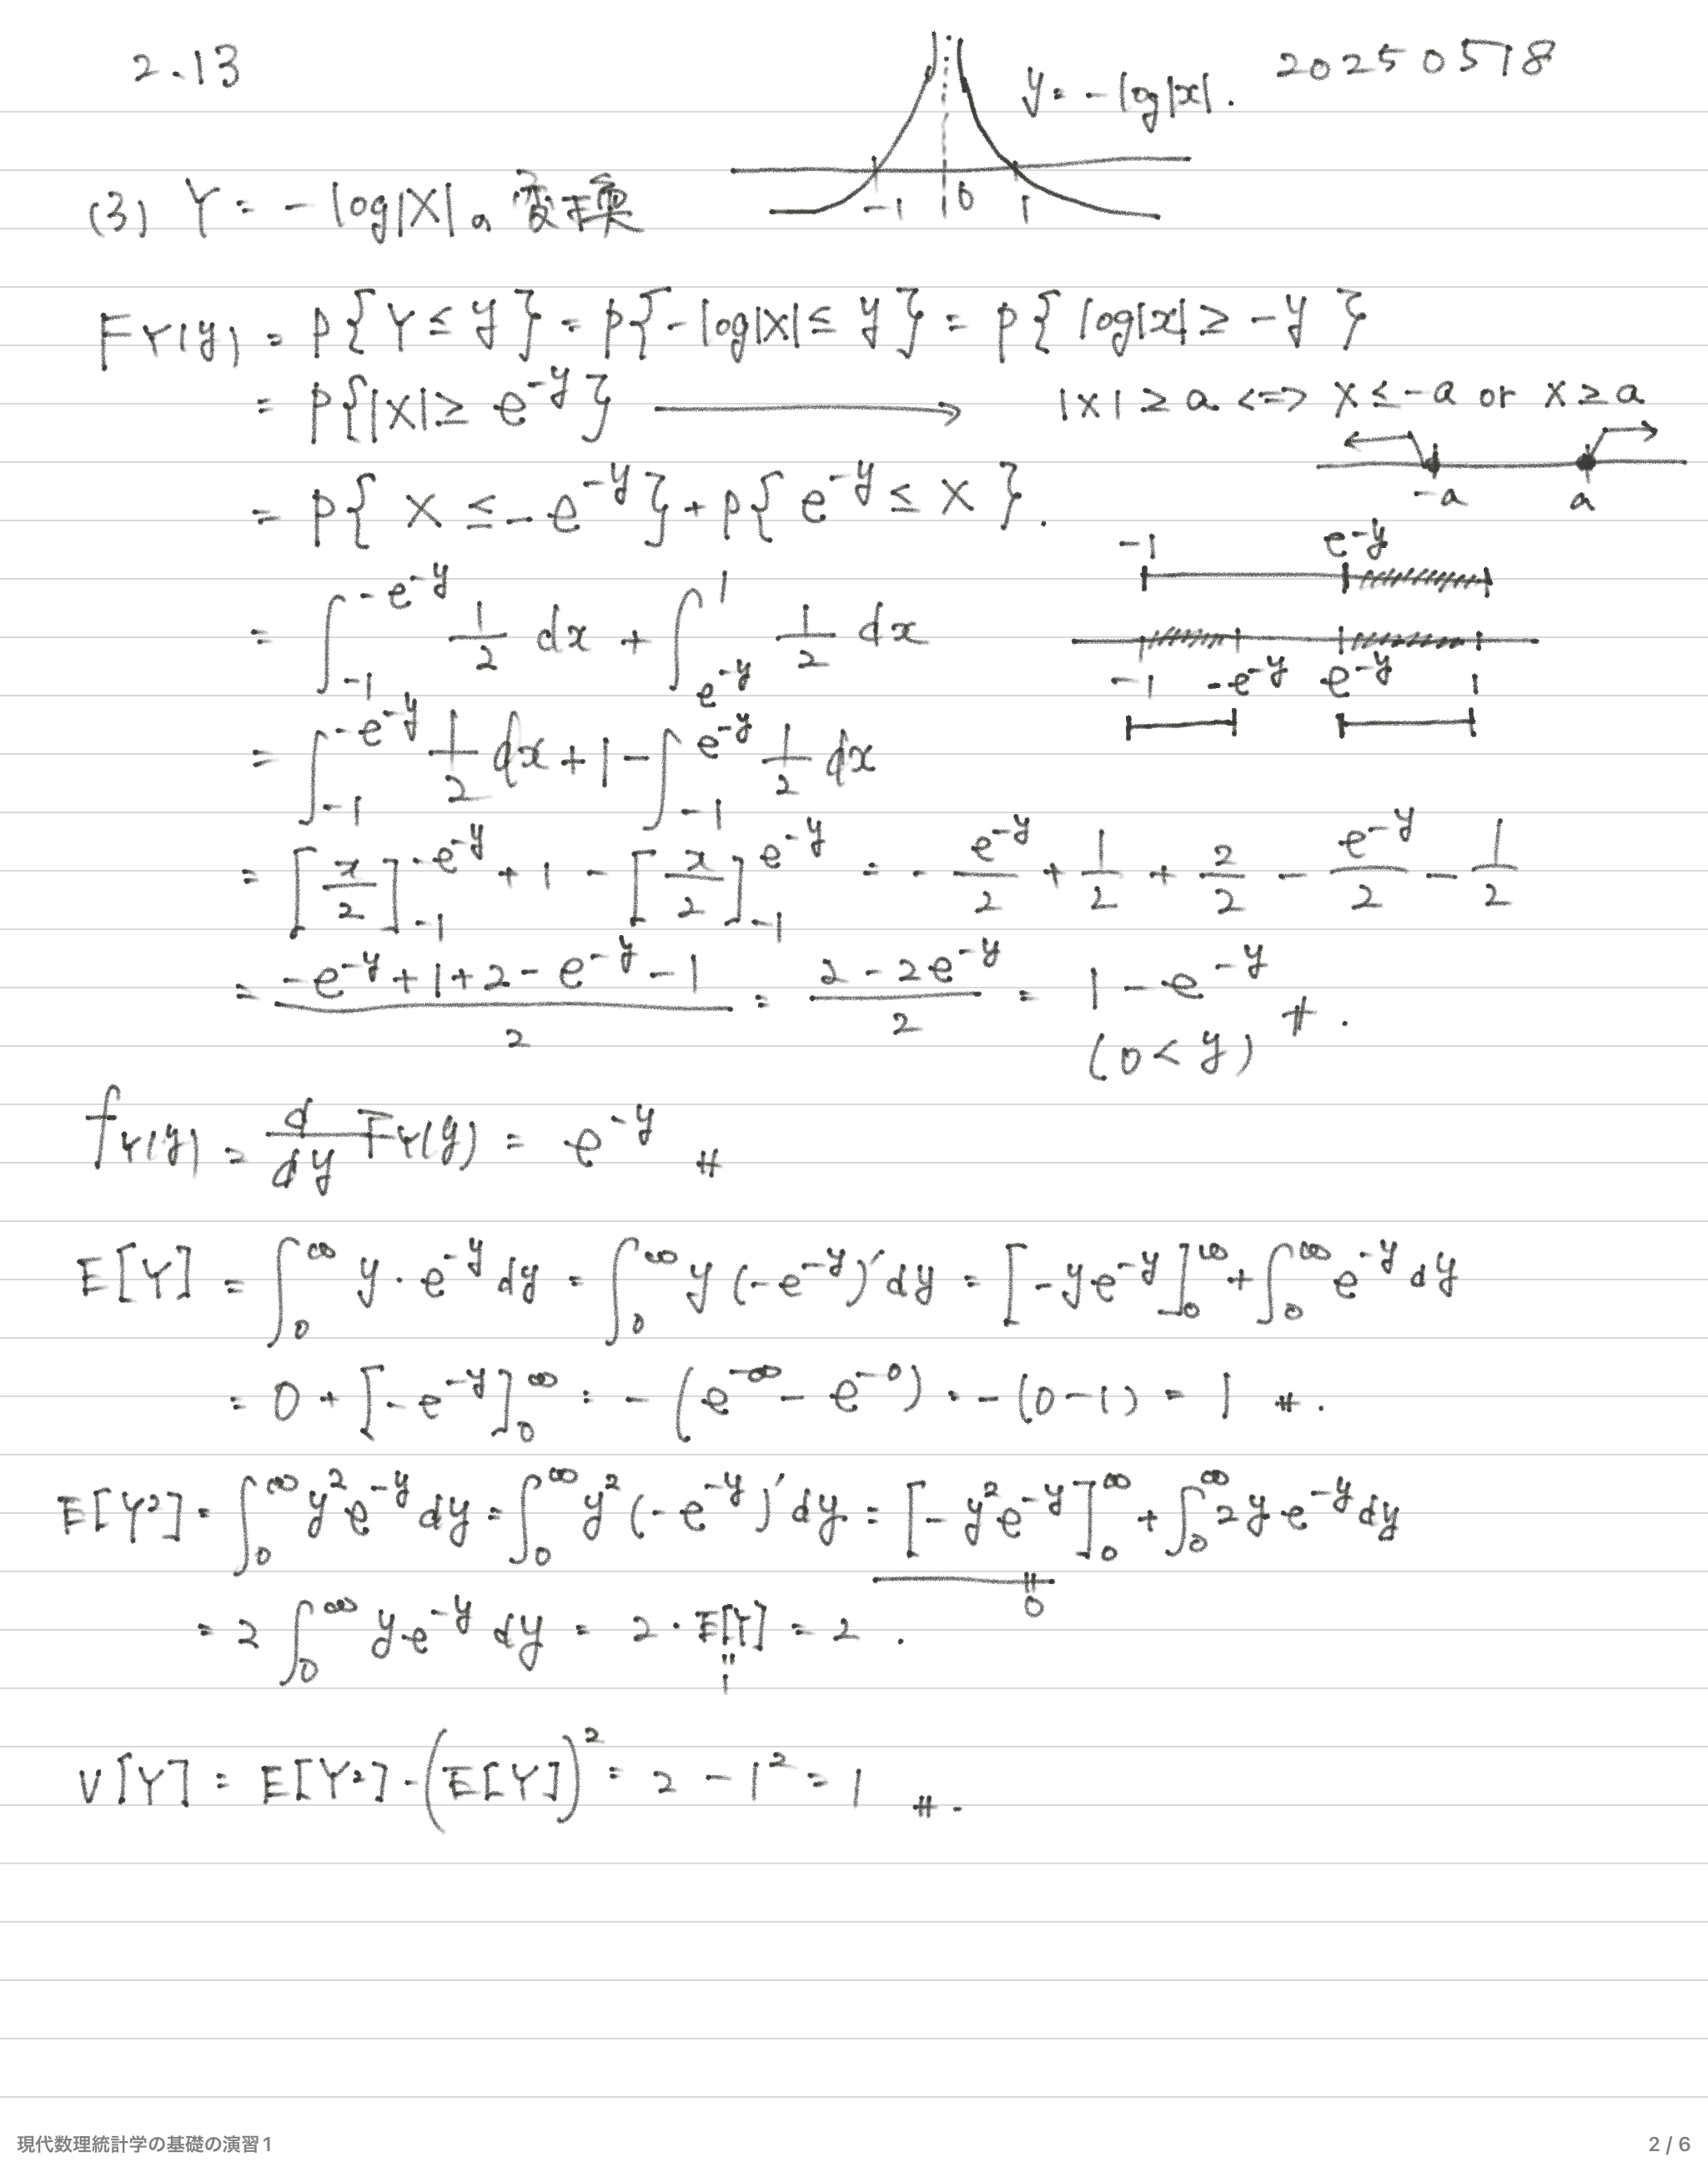 2.13
y = -log|x|.
20250578
-1 0 1
(3) Y = -log|X| の 変換
FY(y) = P{Y ≤ y} = P{-log|X| ≤ y} = P{log|x| ≥ -y}
= P{|X| ≥ e^{-y}} → |X| ≥ a ⇔ X ≤ -a or X ≥ a
-a a
= P{X ≤ -e^{-y}} + P{e^{-y} ≤ X}.
-1 e^{-y}
= ∫_{-1}^{-e^{-y}} 1/2 dx + ∫_{e^{-y}}^{1} 1/2 dx
-1 -e^{-y} e^{-y} 1
= ∫_{-1}^{-e^{-y}} 1/2 dx + 1 - ∫_{-1}^{e^{-y}} 1/2 dx
= [x/2]_{-1}^{-e^{-y}} + 1 - [x/2]_{-1}^{e^{-y}} = -e^{-y}/2 + 1/2 + 2/2 - e^{-y}/2 - 1/2
= (-e^{-y} + 1 + 2 - e^{-y} - 1)/2 = (2 - 2e^{-y})/2 = 1 - e^{-y} #.
(0 < y)
fY(y) = d/dy FY(y) = e^{-y} #
E[Y] = ∫_0^∞ y · e^{-y} dy = ∫_0^∞ y (-e^{-y})' dy = [-ye^{-y}]_0^∞ + ∫_0^∞ e^{-y} dy
= 0 + [-e^{-y}]_0^∞ = -(e^{-∞} - e^{-0}) = -(0-1) = 1 #.
E[Y²] = ∫_0^∞ y² e^{-y} dy = ∫_0^∞ y² (-e^{-y})' dy = [-y² e^{-y}]_0^∞ + ∫_0^∞ 2y e^{-y} dy
= 0
= 2 ∫_0^∞ y e^{-y} dy = 2 · E[Y] = 2 .
= 1
V[Y] = E[Y²] - (E[Y])² = 2 - 1² = 1 #.
現代数理統計学の基礎の演習1
2 / 6